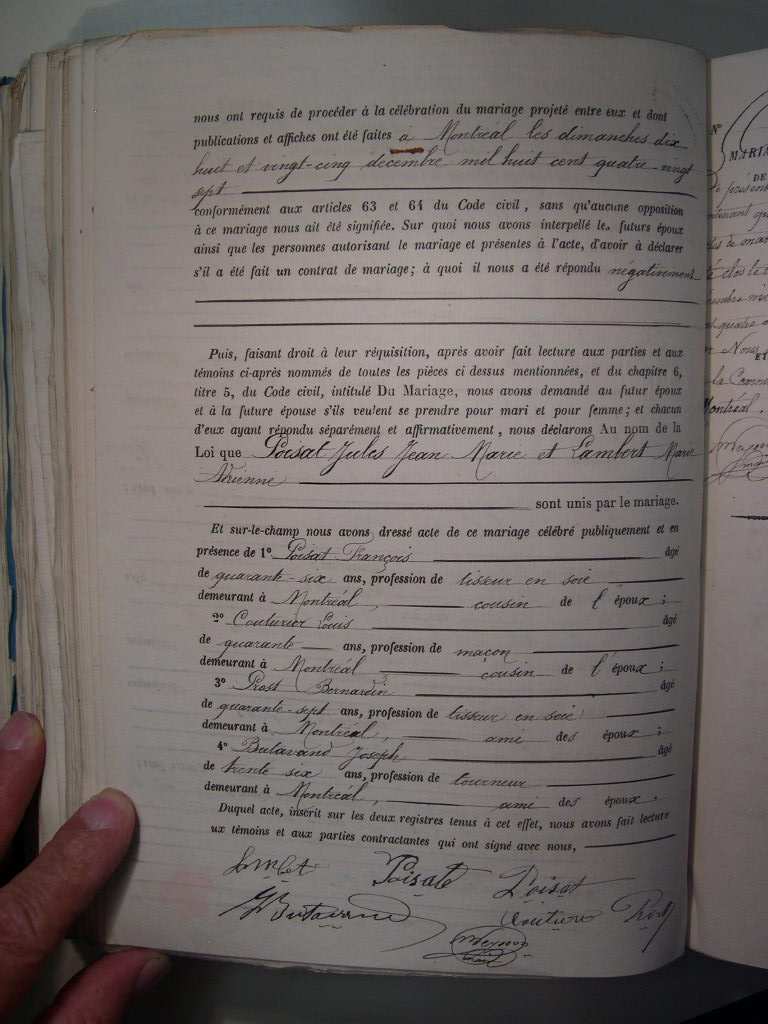 nous ont requis de procéder à la célébration du mariage projeté entre eux et dont
publications et affiches ont été faites à Montréal les dimanches dix-
huit et vingt-cinq décembre mil huit cent quatre-vingt
sept
conformément aux articles 63 et 64 du Code civil, sans qu'aucune opposition
à ce mariage nous ait été signifiée. Sur quoi nous avons interpellé les futurs époux
ainsi que les personnes autorisant le mariage et présentes à l'acte, d'avoir à déclarer
s'il a été fait un contrat de mariage; à quoi il nous a été répondu négativement
Puis, faisant droit à leur réquisition, après avoir fait lecture aux parties et aux
témoins ci-après nommés de toutes les pièces ci dessus mentionnées, et du chapitre 6,
titre 5, du Code civil, intitulé Du Mariage, nous avons demandé au futur époux
et à la future épouse s'ils veulent se prendre pour mari et pour femme; et chacun
d'eux ayant répondu séparément et affirmativement, nous déclarons Au nom de la
Loi que Poisat Jules Jean Marie et Lambert Marie
sont unis par le mariage.
Et sur-le-champ nous avons dressé acte de ce mariage célébré publiquement et en
présence de 1° Poisat François âgé
de quarante-six ans, profession de tisseur en soie
demeurant à Montréal, cousin de l'époux;
2° Couturier Louis âgé
de quarante ans, profession de maçon
demeurant à Montréal cousin de l'époux;
3° Prost Bernardin âgé
de quarante-sept ans, profession de tisseur en soie
demeurant à Montréal, ami des époux;
4° Butavand Joseph âgé
de trente six ans, profession de tourneur
demeurant à Montréal, ami des époux.
Duquel acte, inscrit sur les deux registres tenus à cet effet, nous avons fait lecture
ux témoins et aux parties contractantes qui ont signé avec nous,
Poisat Poisat
Butavand Prost
N°
MARIA
DE
ET
la Commu
Montréal.